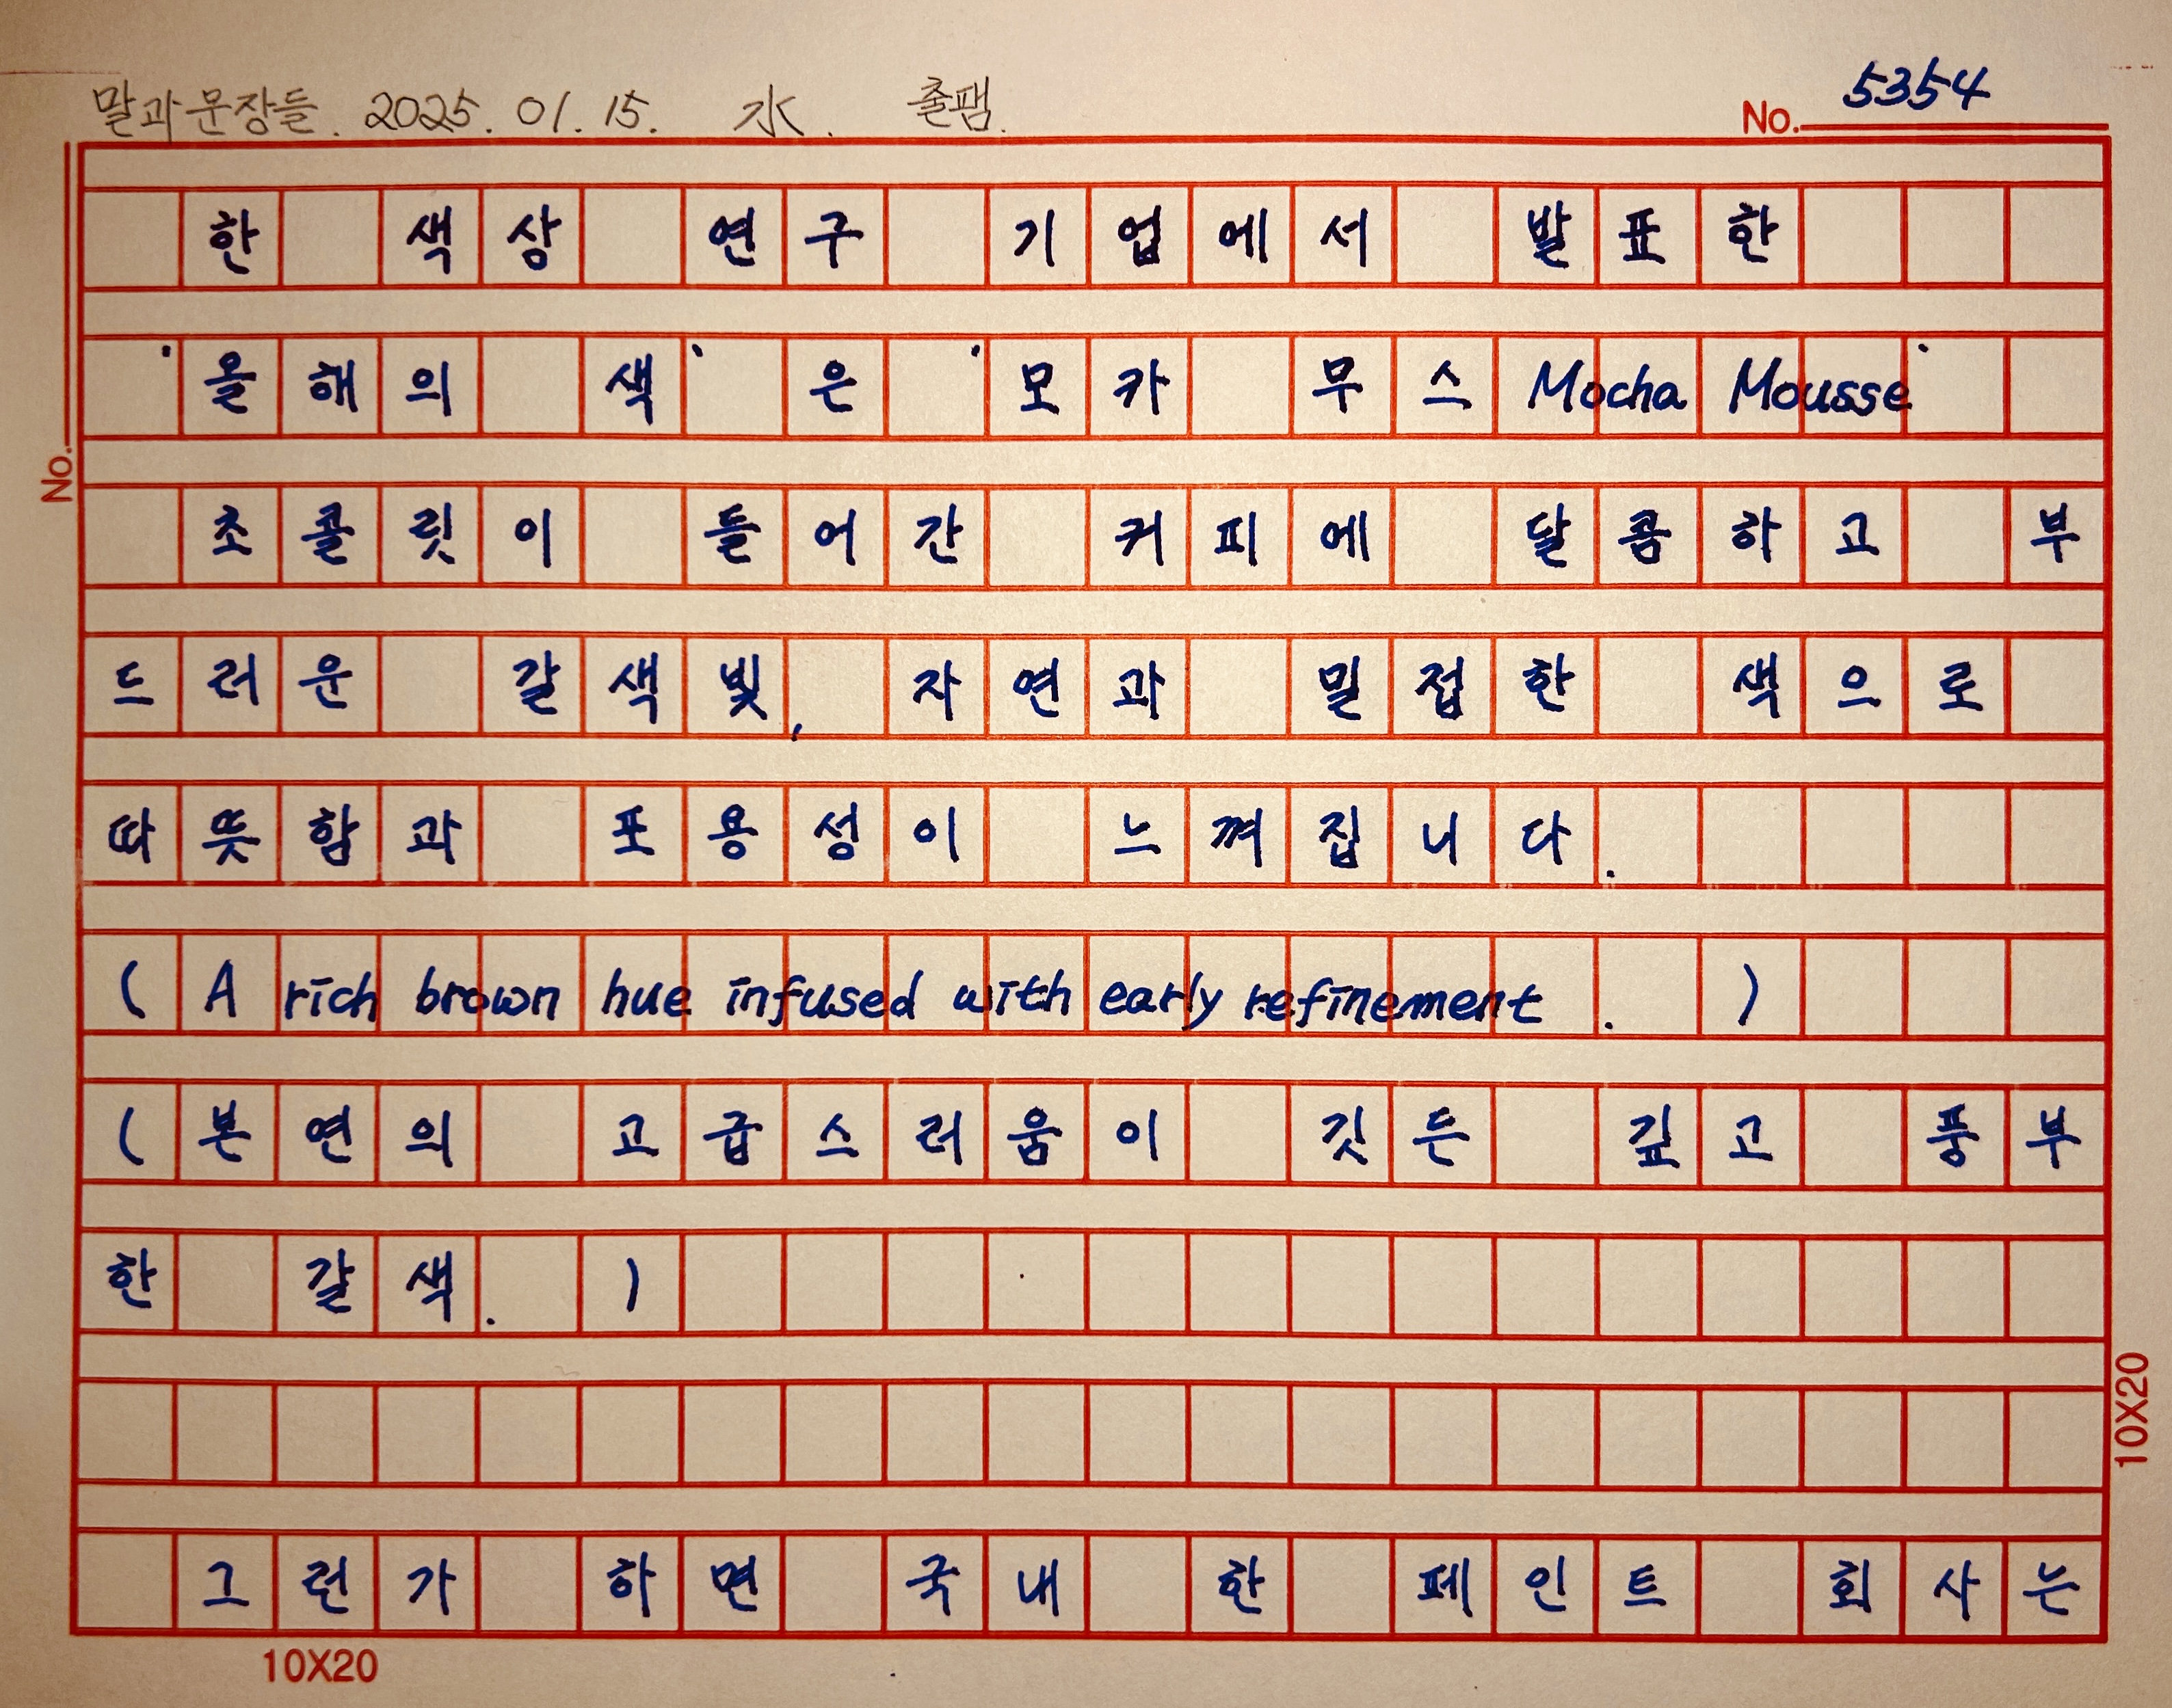 말과 문장들. 2025. 01. 15. 水. 출팸.
No. 5354
한 색상 연구 기업에서 발표한
'올해의 색'은 '모카 무스 Mocha Mousse'
초콜릿이 들어간 커피에 달콤하고 부
드러운 갈색빛, 자연과 밀접한 색으로
따뜻함과 포용성이 느껴집니다.
(A rich brown hue infused with early refinement.)
(본연의 고급스러움이 깃든 깊고 풍부
한 갈색.)
그런가 하면 국내 한 페인트 회사는
No.
10X20
10X20